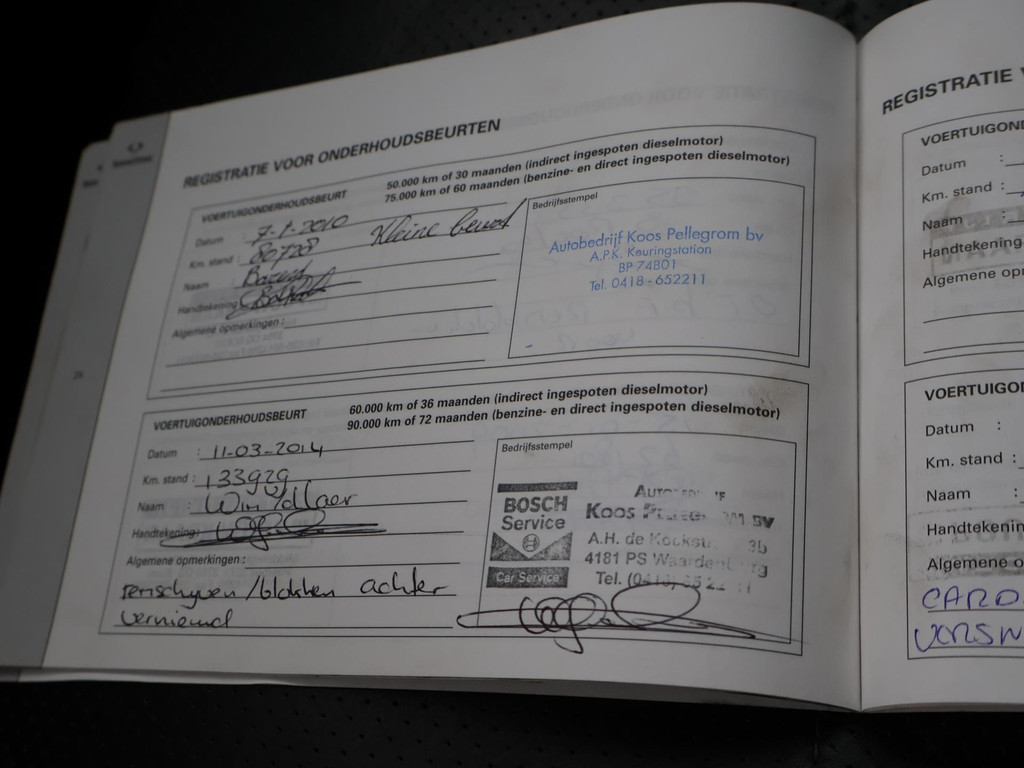 REGISTRATIE VOOR ONDERHOUDSBEURTEN
VOERTUIGONDERHOUDSBEURT
50.000 km of 30 maanden (indirect ingespoten dieselmotor)
75.000 km of 60 maanden (benzine- en direct ingespoten dieselmotor)
Datum : 7-1-2010 Kleine beurt
Km. stand : 80728
Naam : Barend
Handtekening
Algemene opmerkingen :
Bedrijfsstempel
Autobedrijf Koos Pellegrom bv
A.P.K. Keuringstation
BP 74801
Tel. 0418-652211
VOERTUIGONDERHOUDSBEURT
60.000 km of 36 maanden (indirect ingespoten dieselmotor)
90.000 km of 72 maanden (benzine- en direct ingespoten dieselmotor)
Datum : 11-03-2014
Km. stand : 133929
Naam : Wim
Handtekening:
Algemene opmerkingen :
remschyven/blokken achter
vernieuwd
Bedrijfsstempel
BOSCH
Service
Car Service
Koos
A.H. de
4181 PS
Tel.
REGISTRATIE
Datum :
Km. stand :
Naam :
Handtekening
Datum :
Km. stand :
Naam :